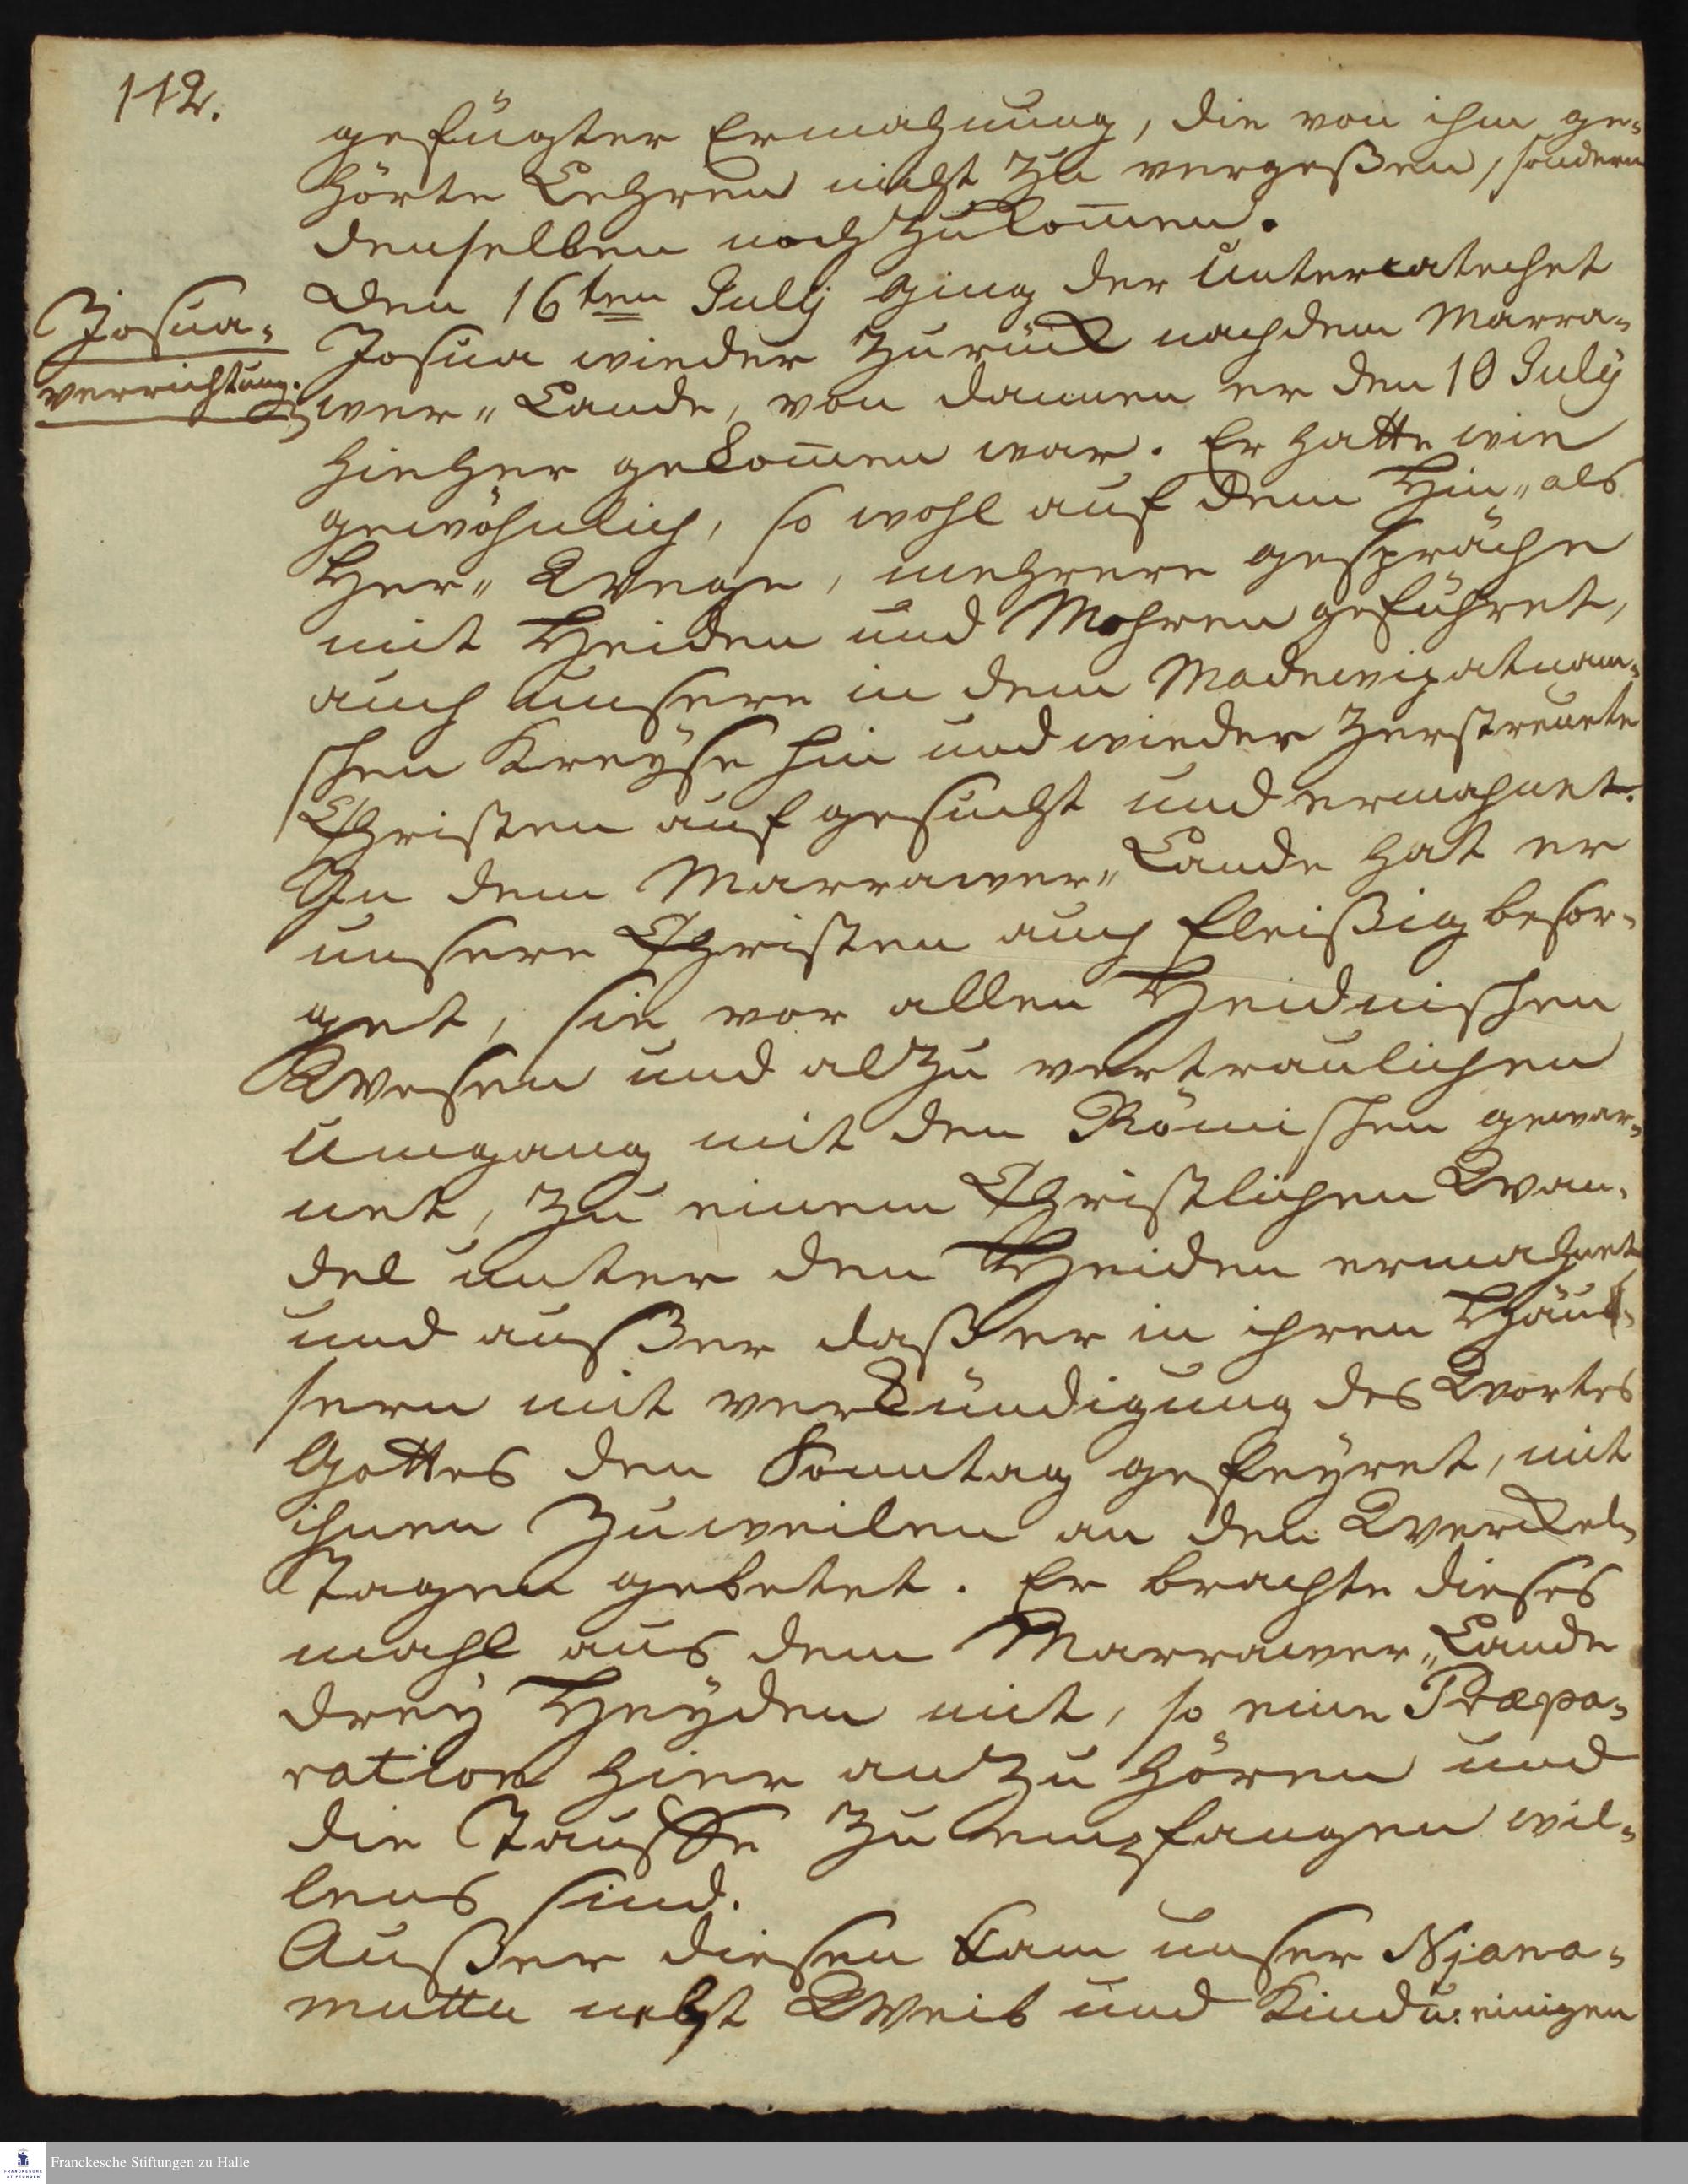 112.
gefügter Ermahnung, die von ihm ge-
hörte Lehren nicht zu vergeßen, sondern
denselben nachzukom̄en.
Den 16ten July ging der Untercatechet
Josua-
Josua wieder zurück nach dem Marra-
verrichtung.
wer" Lande, von dannen er den 10 July
hieher gekom̄en war. Er hatte wie
gewöhnlich, so wohl auf dem Hin" als
Her" Wege, mehrere gespräche
mit Heiden und Mohren geführet,
auch unsere in dem Madewipatnam-
schen Kreyse hin und wieder zerstreuete
Christen auf gesucht und ermahnet.
In dem Marrawer" Lande hat er
unsere Christen auch fleißig besor-
get, sie vor allen Heidnischen
Wesen und alzu vertraulichen
Umgang mit den Römischen gewar-
net, zu einem Christlichen Wan-
del unter den Heiden ermahnet
und außer daß er in ihren Häu-
sern mit verkündigung des Wortes
Gottes den Sonntag gefeyret, mit
ihnen zuweilen an den Werckel-
Tagen gebetet. Er brachte dieses
mahl aus dem Marrawer" Lande
drey Heyden mit, so eine Præpa-
ration hier anzu hören und
die Tauffe zu empfangen wil-
lens sind.
Außer diesen kam unser Njana-
muttu nebst Weib und Kind u. einigen
Franckesche Stiftungen zu Halle
FRANCKESCHE
STIFTUNGEN